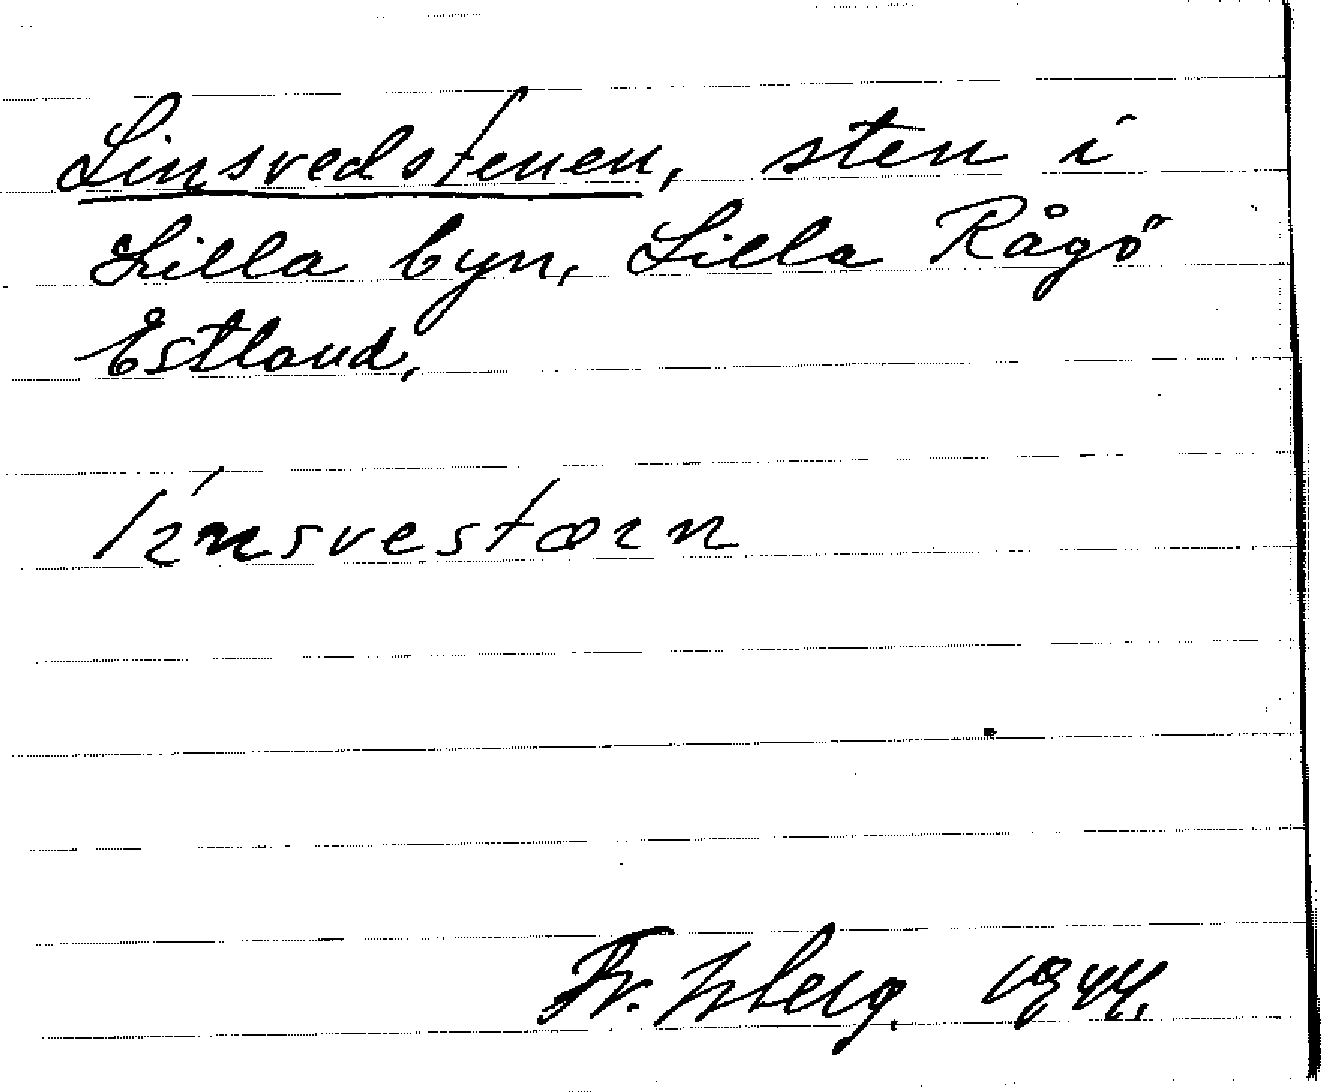 Linsvedstenen, sten i
Lilla byn, Lilla Rågö
Estland.
línsvestæin
Fr. Isberg. 1944.